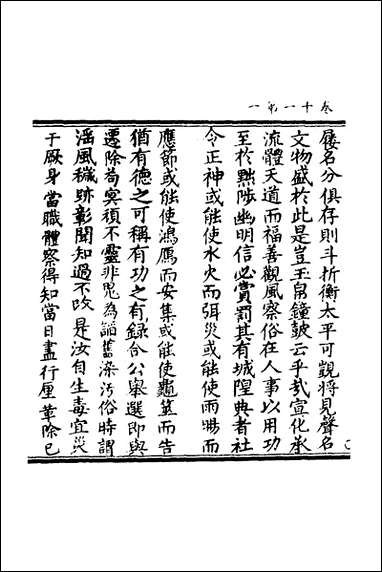 卷十一第一
屨名分俱存則斗折衡太平可觀將見聲名
文物盛於此是豈玉帛鐘鼓云乎哉宣化承
流體天道而福善觀風察俗在人事以用功
至於黜陟幽明信必賞罰其有城隍典者社
令正神或能使水火而弭災或能使雨暘而
應節或能使鴻鴈而安集或能使龜筮而告
猶有德之可稱有功之有錄合公舉選即與
遷除苟冥頑不靈非鬼為謟舊染污俗時謂
滛風穢跡彰聞知過不改是汝自生毒宜災
于厥身當職體察得知當日盡行厘革除已